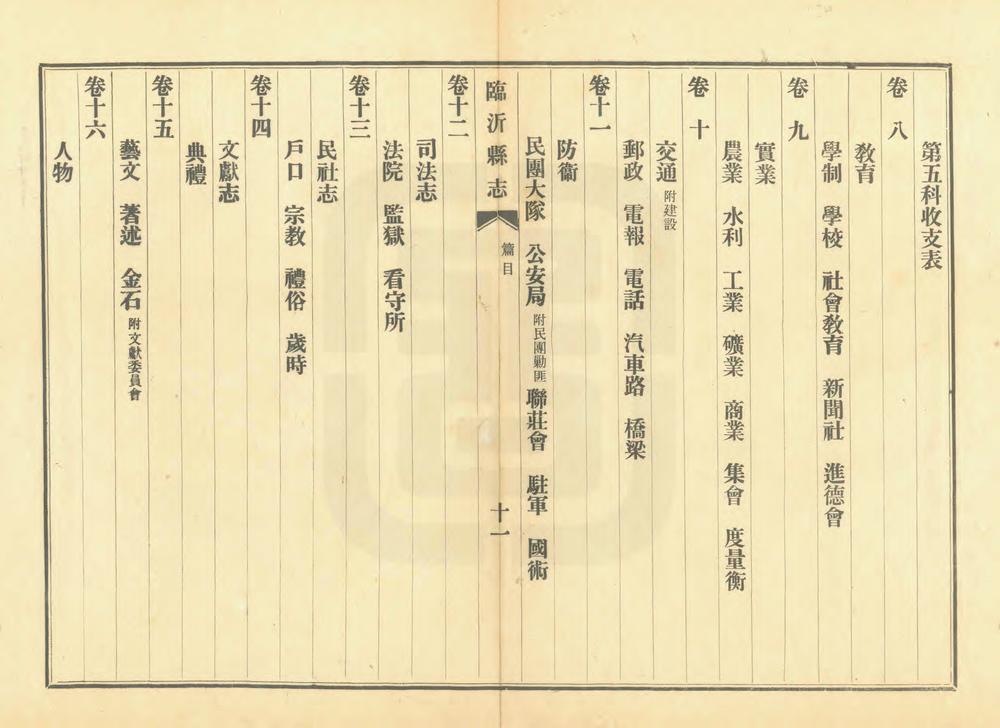 第五科收支表
卷 八
教育
學制 學校 社會教育 新聞社 進德會
卷 九
實業
農業 水利 工業 礦業 商業 集會 度量衡
卷 十
交通 附建設
郵政 電報 電話 汽車路 橋梁
卷十一
防衞
民團大隊 公安局 附民團勦匪 聯莊會 駐軍 國術
臨沂縣志 篇目 十一
卷十二
司法志
法院 監獄 看守所
卷十三
民社志
戶口 宗教 禮俗 歲時
卷十四
文獻志
典禮
卷十五
藝文 著述 金石 附文獻委員會
卷十六
人物